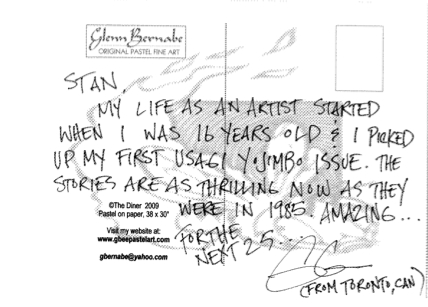 Glenn Bernabe
ORIGINAL PASTEL FINE ART
STAN,
MY LIFE AS AN ARTIST STARTED
WHEN I WAS 16 YEARS OLD & I PICKED
UP MY FIRST USAGI YOJIMBO ISSUE. THE
STORIES ARE AS THRILLING NOW AS THEY
WERE IN 1985. AMAZING...
FOR THE
NEXT 25...
(FROM TORONTO, CAN)
©The Diner 2009
Pastel on paper, 38 x 30"
Visit my website at:
www.gbeepastelart.com
gbernabe@yahoo.com